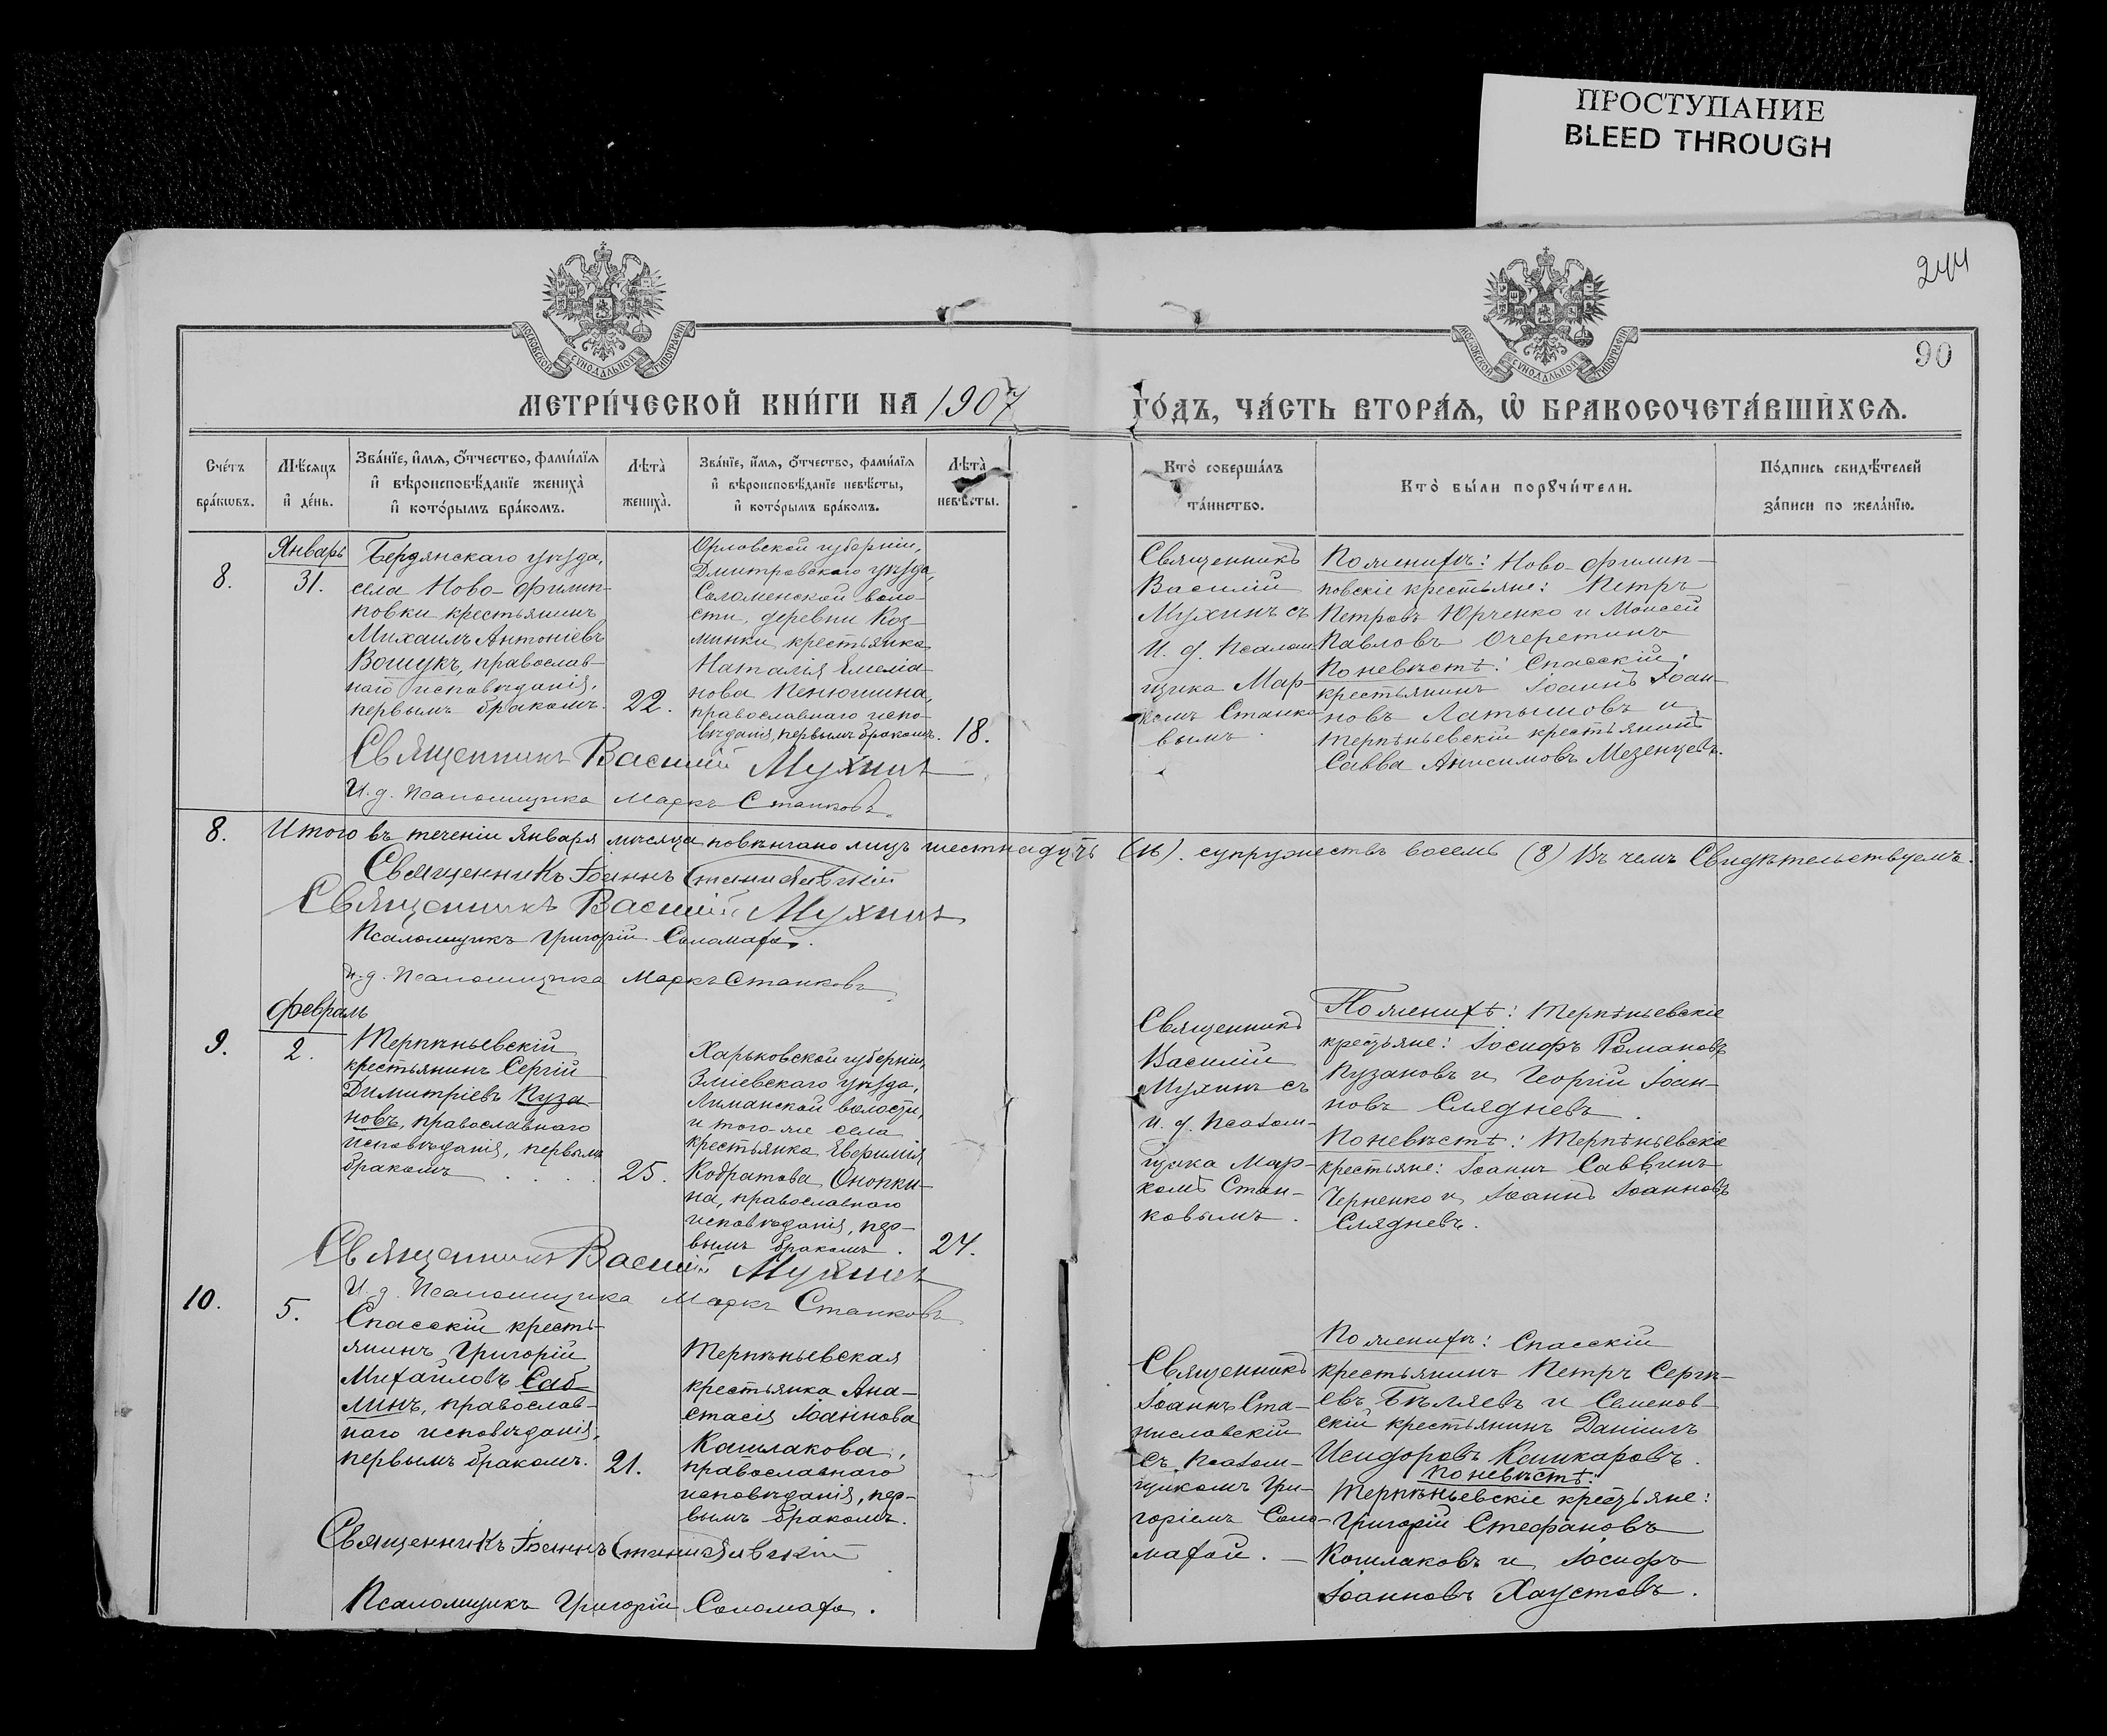 ПРОСТУПАНИЕ
BLEED THROUGH
244
90
МОСКОВСКОЙ СУНОДАЛЬНОЙ ТИПОГРАФІИ
МОСКОВСКОЙ СУНОДАЛЬНОЙ ТИПОГРАФІИ
МЕТРИ́ЧЕСКОЙ КНИ́ГИ НА 1907
ГО́ДЪ, ЧА́СТЬ ВТОРА́Ѧ, Ѽ БРАКОСОЧЕТА́ВШИХСѦ.
Сче́тъ
бра́кωвъ.
Мѣ́сяцъ
и҆ де́нь.
Зва́нїе, и҆́мя, ѻ҆́тчество, фами́лїя
и҆ вѣроисповѣ́данїе жениха̀
и҆ кото́рымъ бра́комъ.
Лѣта̀
жениха̀.
Зва́нїе, и҆́мя, ѻ҆́тчество, фами́лїя
и҆ вѣроисповѣ́данїе невѣ́сты,
и҆ кото́рымъ бра́комъ.
Лѣта̀
невѣ́сты.
Кто̀ соверша́лъ
та́инство.
Кто̀ бы́ли порꙋчи́тели.
По́дпись свидѣ́телей
за́писи по жела́нїю.
8.
Январь
31.
Бердянскаго уѣзда,
села Ново-Филип-
повки крестьянинъ
Михаилъ Антоніевъ
Вошукъ, православ-
наго исповѣданія,
первымъ бракомъ.
22.
Орловской губерніи,
Дмитровскаго уѣзда,
Соломенской воло-
сти, деревни Коз-
минки крестьянка
Наталія Емеліа-
нова Пенюшина,
православнаго испо-
вѣданія, первымъ бракомъ.
18.
Священникъ
Василій
Мухинъ съ
И. д. Псалом-
щика Мар-
комъ Станко-
вымъ.
По женихѣ: Ново-Филип-
повскіе крестьяне: Петръ
Петровъ Юрченко и Моисей
Павловъ Очеретинъ
По невѣстѣ: Спасскій
крестьянинъ Іоаннъ Іоан-
новъ Латышовъ и
Терпѣньевскій крестьянинъ
Савва Анисимовъ Мезенцевъ.
Священникъ Василій Мухинъ
И. д. Псаломщика Маркъ Станковъ.
8. Итого въ теченіи Января мѣсяца повѣнчано лицъ шестнадцать (16). супружествъ восемь (8) Въ чемъ Свидѣтельствуемъ.
Священникъ Іоаннъ Станиславскій
Священникъ Василій Мухинъ
Псаломщикъ Григорій Соломаха.
И. д. Псаломщика Маркъ Станковъ
Февраль
9.
2.
Терпѣньевскій
крестьянинъ Сергій
Димитріевъ Пуза-
новъ, православнаго
исповѣданія, первымъ
бракомъ . . . .
25.
Харьковской губерніи,
Зміевскаго уѣзда,
Лиманской волости,
и того-же села
крестьянка Евфимія
Кодратова Онопки-
на, православнаго
исповѣданія, пер-
вымъ бракомъ.
24.
Священникъ
Василій
Мухинъ съ
и. д. Псалом-
щика Мар-
комъ Стан-
ковымъ.
По женихѣ: Терпѣньевскіе
крестьяне: Іосифъ Романовъ
Пузановъ и Георгій Іоан-
новъ Слядневъ.
По невѣстѣ: Терпѣньевскіе
крестьяне: Іоаннъ Саввинъ
Черненко и Іоаннъ Іоанновъ
Слядневъ.
Священникъ Василій Мухинъ
И. д. Псаломщика Маркъ Станковъ
10.
5.
Спасскій кресть-
янинъ Григорій
Михайловъ Саб-
линъ, православ-
наго исповѣданія,
первымъ бракомъ.
21.
Терпѣньевская
крестьянка Ана-
стасія Іоаннова
Кошлакова,
православнаго
исповѣданія, пер-
вымъ бракомъ.
Священникъ
Іоаннъ Ста-
ниславскій
съ Псалом-
щикомъ Гри-
горіемъ Соло-
махой. —
По женихѣ: Спасскій
крестьянинъ Петръ Сергѣ-
евъ Бѣляевъ и Семенов-
скій крестьянинъ Даніилъ
Исидоровъ Кашкаровъ.
По невѣстѣ:
Терпѣньевскіе крестьяне:
Григорій Стефановъ
Кошлаковъ и Іосифъ
Іоанновъ Хаустовъ.
Священникъ Іоаннъ Станиславскій
Псаломщикъ Григорій Соломаха.